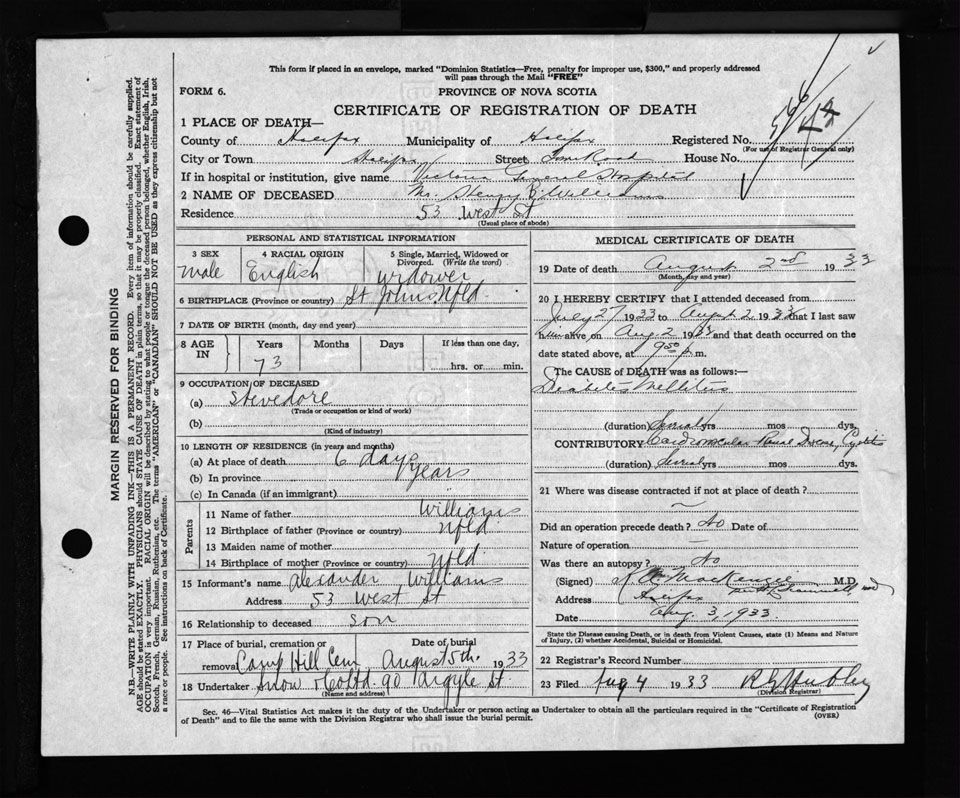 This form if placed in an envelope, marked "Dominion Statistics—Free, penalty for improper use, $300," and properly addressed
will pass through the Mail "FREE"
FORM 6.
PROVINCE OF NOVA SCOTIA
CERTIFICATE OF REGISTRATION OF DEATH
1 PLACE OF DEATH—
County of Halifax Municipality of Halifax Registered No.
(For use of Registrar General only)
City or Town Halifax Street Tower Road House No.
If in hospital or institution, give name Victoria General Hospital
2 NAME OF DECEASED Mr. Henry Williams
Residence 53 West St
(Usual place of abode)
PERSONAL AND STATISTICAL INFORMATION
3 SEX male
4 RACIAL ORIGIN English
5 Single, Married, Widowed or
Divorced. (Write the word) widower
6 BIRTHPLACE (Province or country) St Johns Nfld.
7 DATE OF BIRTH (month, day and year)
8 AGE IN Years Months Days If less than one day,
73 hrs. or min.
9 OCCUPATION OF DECEASED
(a) Stevedore
(Trade or occupation or kind of work)
(b)
(Kind of industry)
10 LENGTH OF RESIDENCE (in years and months)
(a) At place of death 6 days
(b) In province years
(c) In Canada (if an immigrant)
Parents
11 Name of father Williams
12 Birthplace of father (Province or country) Nfld.
13 Maiden name of mother
14 Birthplace of mother (Province or country) Nfld
15 Informant's name Alexander Williams
Address 53 West St
16 Relationship to deceased son
17 Place of burial, cremation or Date of burial
removal Camp Hill Cem August 5th. 1933
18 Undertaker Snow & Co Ltd. 90 Argyle St
(Name and address)
MEDICAL CERTIFICATE OF DEATH
19 Date of death August 2nd 1933
(Month, day and year)
20 I HEREBY CERTIFY that I attended deceased from
July 27 1933 to August 2 1933 that I last saw
him alive on Aug 2 1933 and that death occurred on
date stated above, at 9:50 p.m.
The CAUSE of DEATH was as follows:—
Diabetes Mellitus
(duration) Several yrs mos dys.
CONTRIBUTORY Cardiovascular Renal Disease,
(duration) Several yrs mos dys.
21 Where was disease contracted if not at place of death?
Did an operation precede death? No Date of
Nature of operation —
Was there an autopsy? No
(Signed) MacKenzie M.D.
Address Halifax
Date Aug 3, 1933
State the Disease causing Death, or in death from Violent Causes, state (1) Means and Nature
of Injury, (2) whether Accidental, Suicidal or Homicidal.
22 Registrar's Record Number
23 Filed Aug 4 1933
(Division Registrar)
Sec. 46—Vital Statistics Act makes it the duty of the Undertaker or person acting as Undertaker to obtain all the particulars required in the "Certificate of Registration
of Death" and to file the same with the Division Registrar who shall issue the burial permit.
(OVER)
MARGIN RESERVED FOR BINDING
N.B.—WRITE PLAINLY WITH UNFADING INK—THIS IS A PERMANENT RECORD. Every item of information should be carefully supplied.
AGE should be stated EXACTLY. PHYSICIANS should STATE CAUSE OF DEATH in plain terms, so that it may be properly classified. Exact statement of
OCCUPATION is very important. RACIAL ORIGIN will be described by stating to what people or tongue the deceased person belonged, whether English, Irish,
Scotch, French, German, Russian, Ruthenian, etc. The terms "AMERICAN" or "CANADIAN" SHOULD NOT BE USED as they express citizenship but not
a race or people. See instructions on back of Certificate.